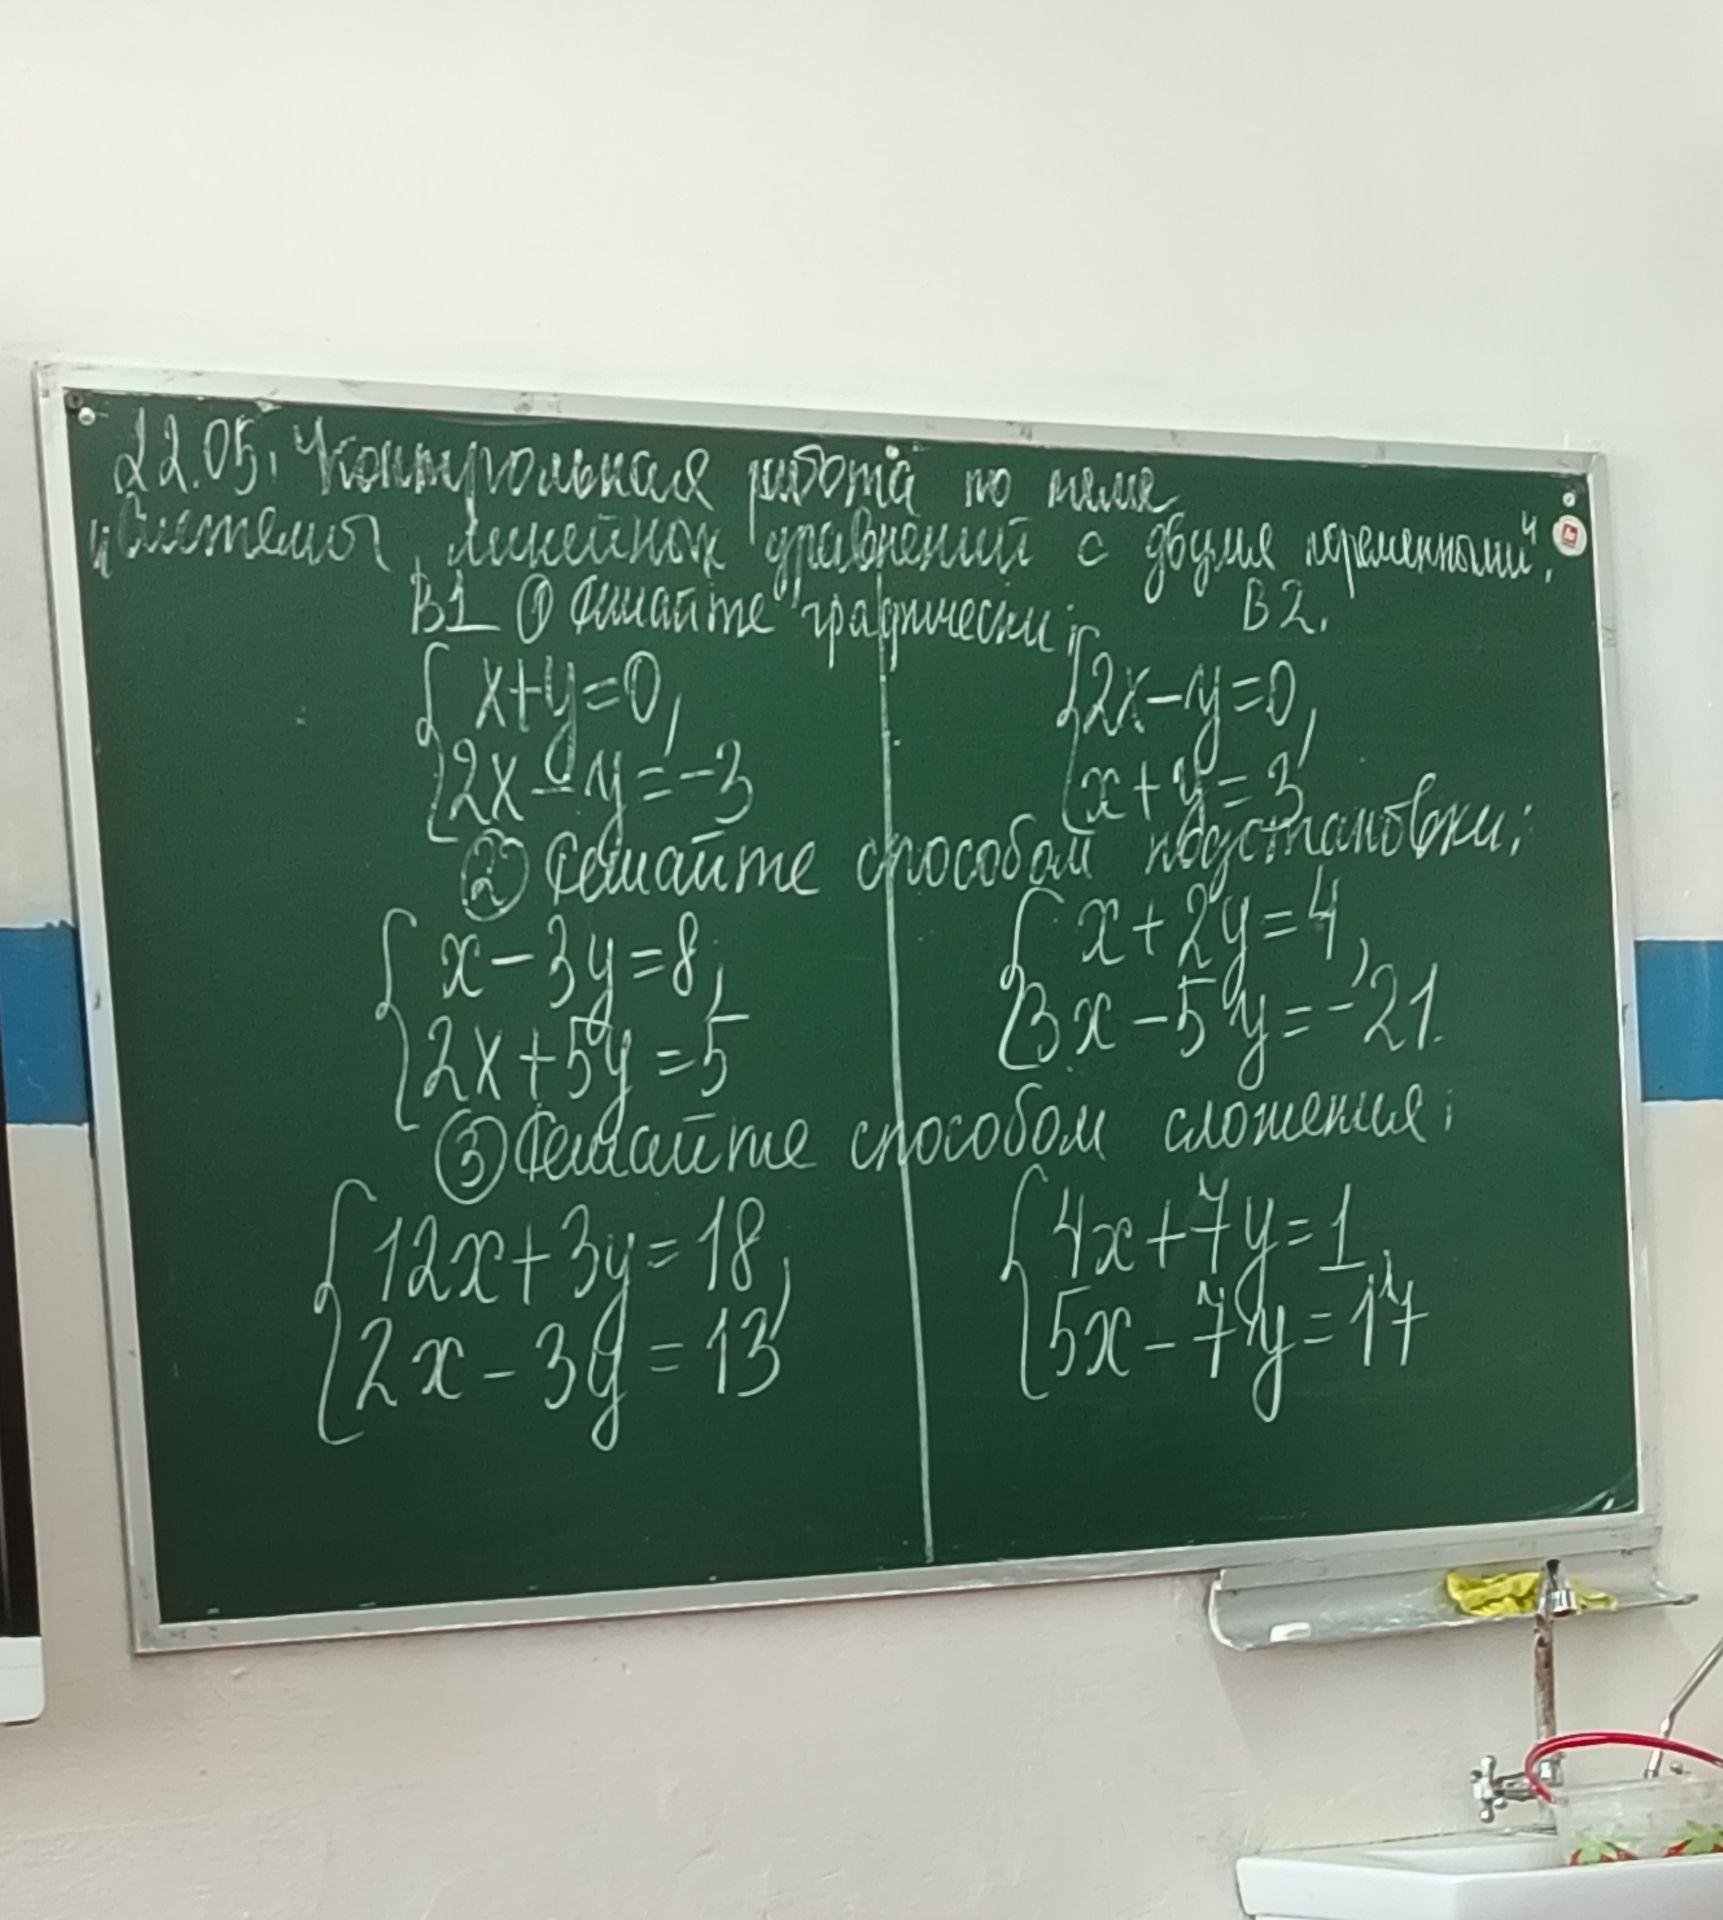 22.05. Контрольная работа по теме
"Системы линейных уравнений с двумя переменными".
В1 ① Решайте графически: В2.
{ x+y=0, { 2x-y=0,
2x-y=-3 x+y=3
② Решайте способом подстановки:
{ x-3y=8, { x+2y=4,
2x+5y=5 3x-5y=-21.
③ Решайте способом сложения:
{ 12x+3y=18, { 4x+7y=1,
2x-3y=13 5x-7y=17